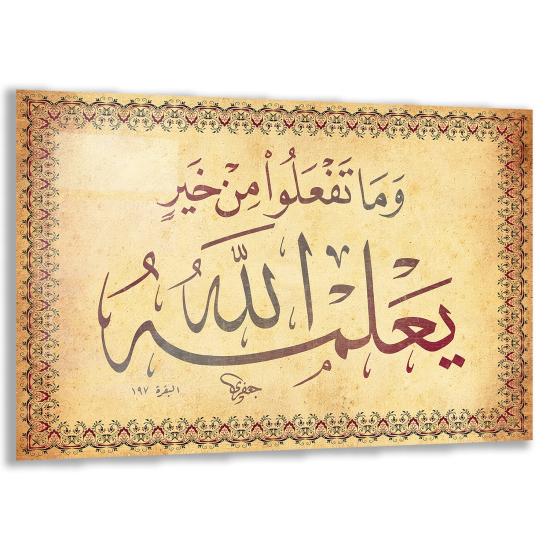 وَمَا تَفْعَلُوا۟ مِنْ خَيْرٍ
يَعْلَمْهُ اللَّهُ
البقرة ١٩٧